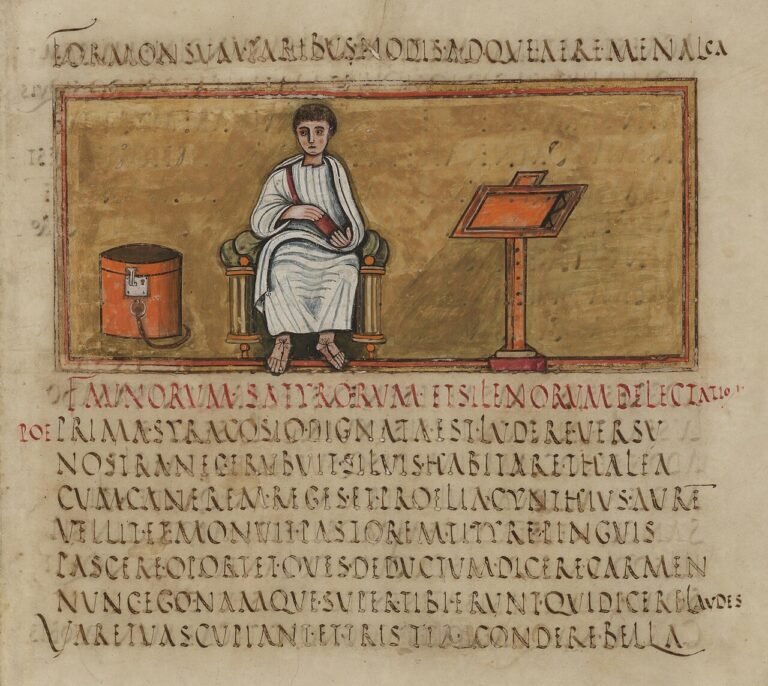 FORMONSVM·PARIBVS·NODIS·ADQVE·AERE·MENALCA
FAVNORVM·SATYRORVM·ET·SILENORVM·DELECTATIO
POE PRIMA·SYRACOSIO·DIGNATA·EST·LVDERE·VERSV
NOSTRA·NEC·ERVBVIT·SILVIS·HABITARE·THALEA
CVM·CANEREM·REGES·ET·PROELIA·CYNTHIVS·AVRE̅
VELLIT·ET·MONVIT·PASTOREM·TITYRE·PINGVIS
PASCERE·OPORTET·OVES·DEDVCTVM·DICERE·CARMEN
NVNC·EGO·NAMQVE·SVPER·TIBI·ERVNT·QVI·DICERE·LAVDES
VARE·TVAS·CVPIANT·ET·TRISTIA·CONDERE·BELLA